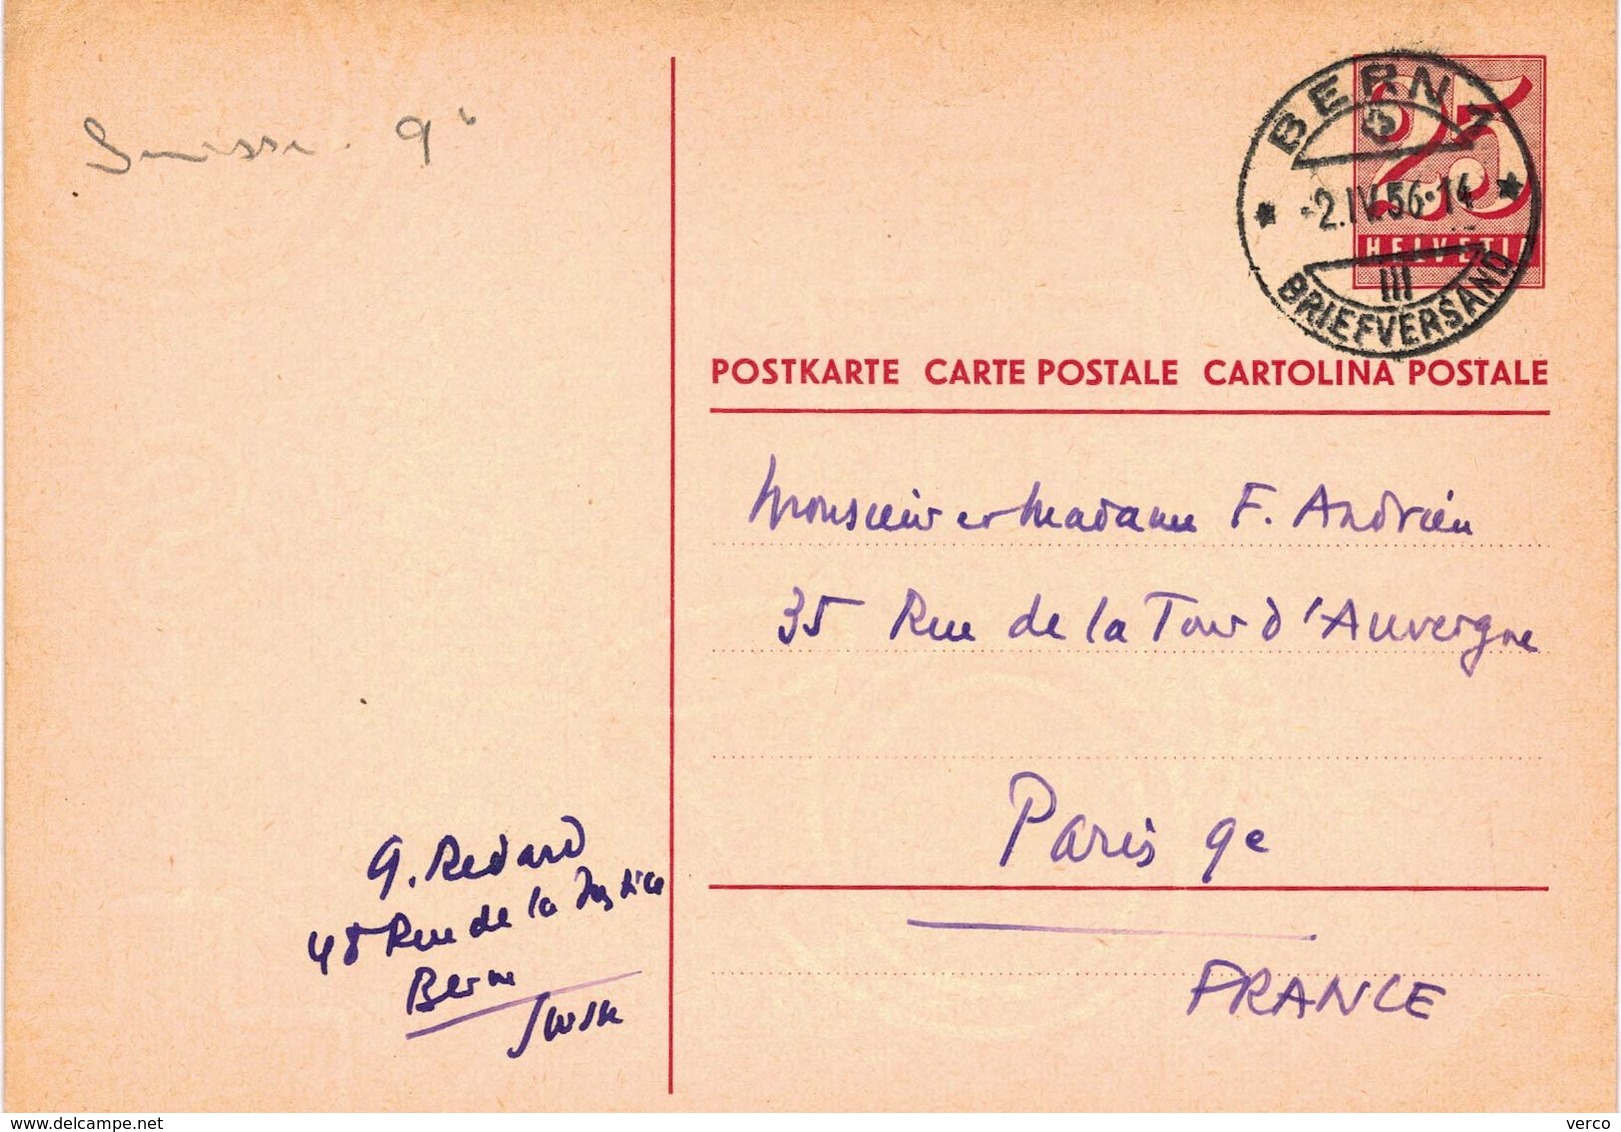 Suisse. 9e
BERN 1
-2.IV.56-14
III
BRIEFVERSAND
25
HELVETIA
POSTKARTE CARTE POSTALE CARTOLINA POSTALE
Monsieur et Madame F. Andrieu
35 Rue de la Tour d'Auvergne
Paris 9e
FRANCE
G. Redard
48 Rue de la Justice
Berne
Suisse
©delcampe.net
verco